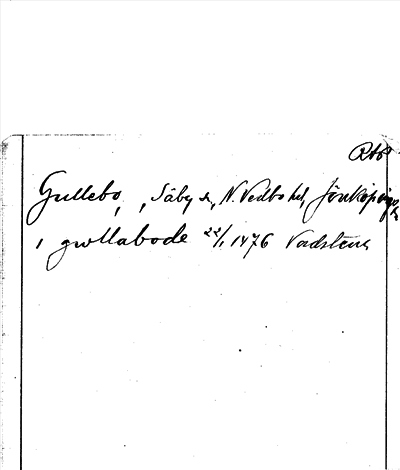 Rb
Gullebo, Säby s, N. Vedbo hd, Jönköpings
i gwllabode 22/1 1476 Vadstena